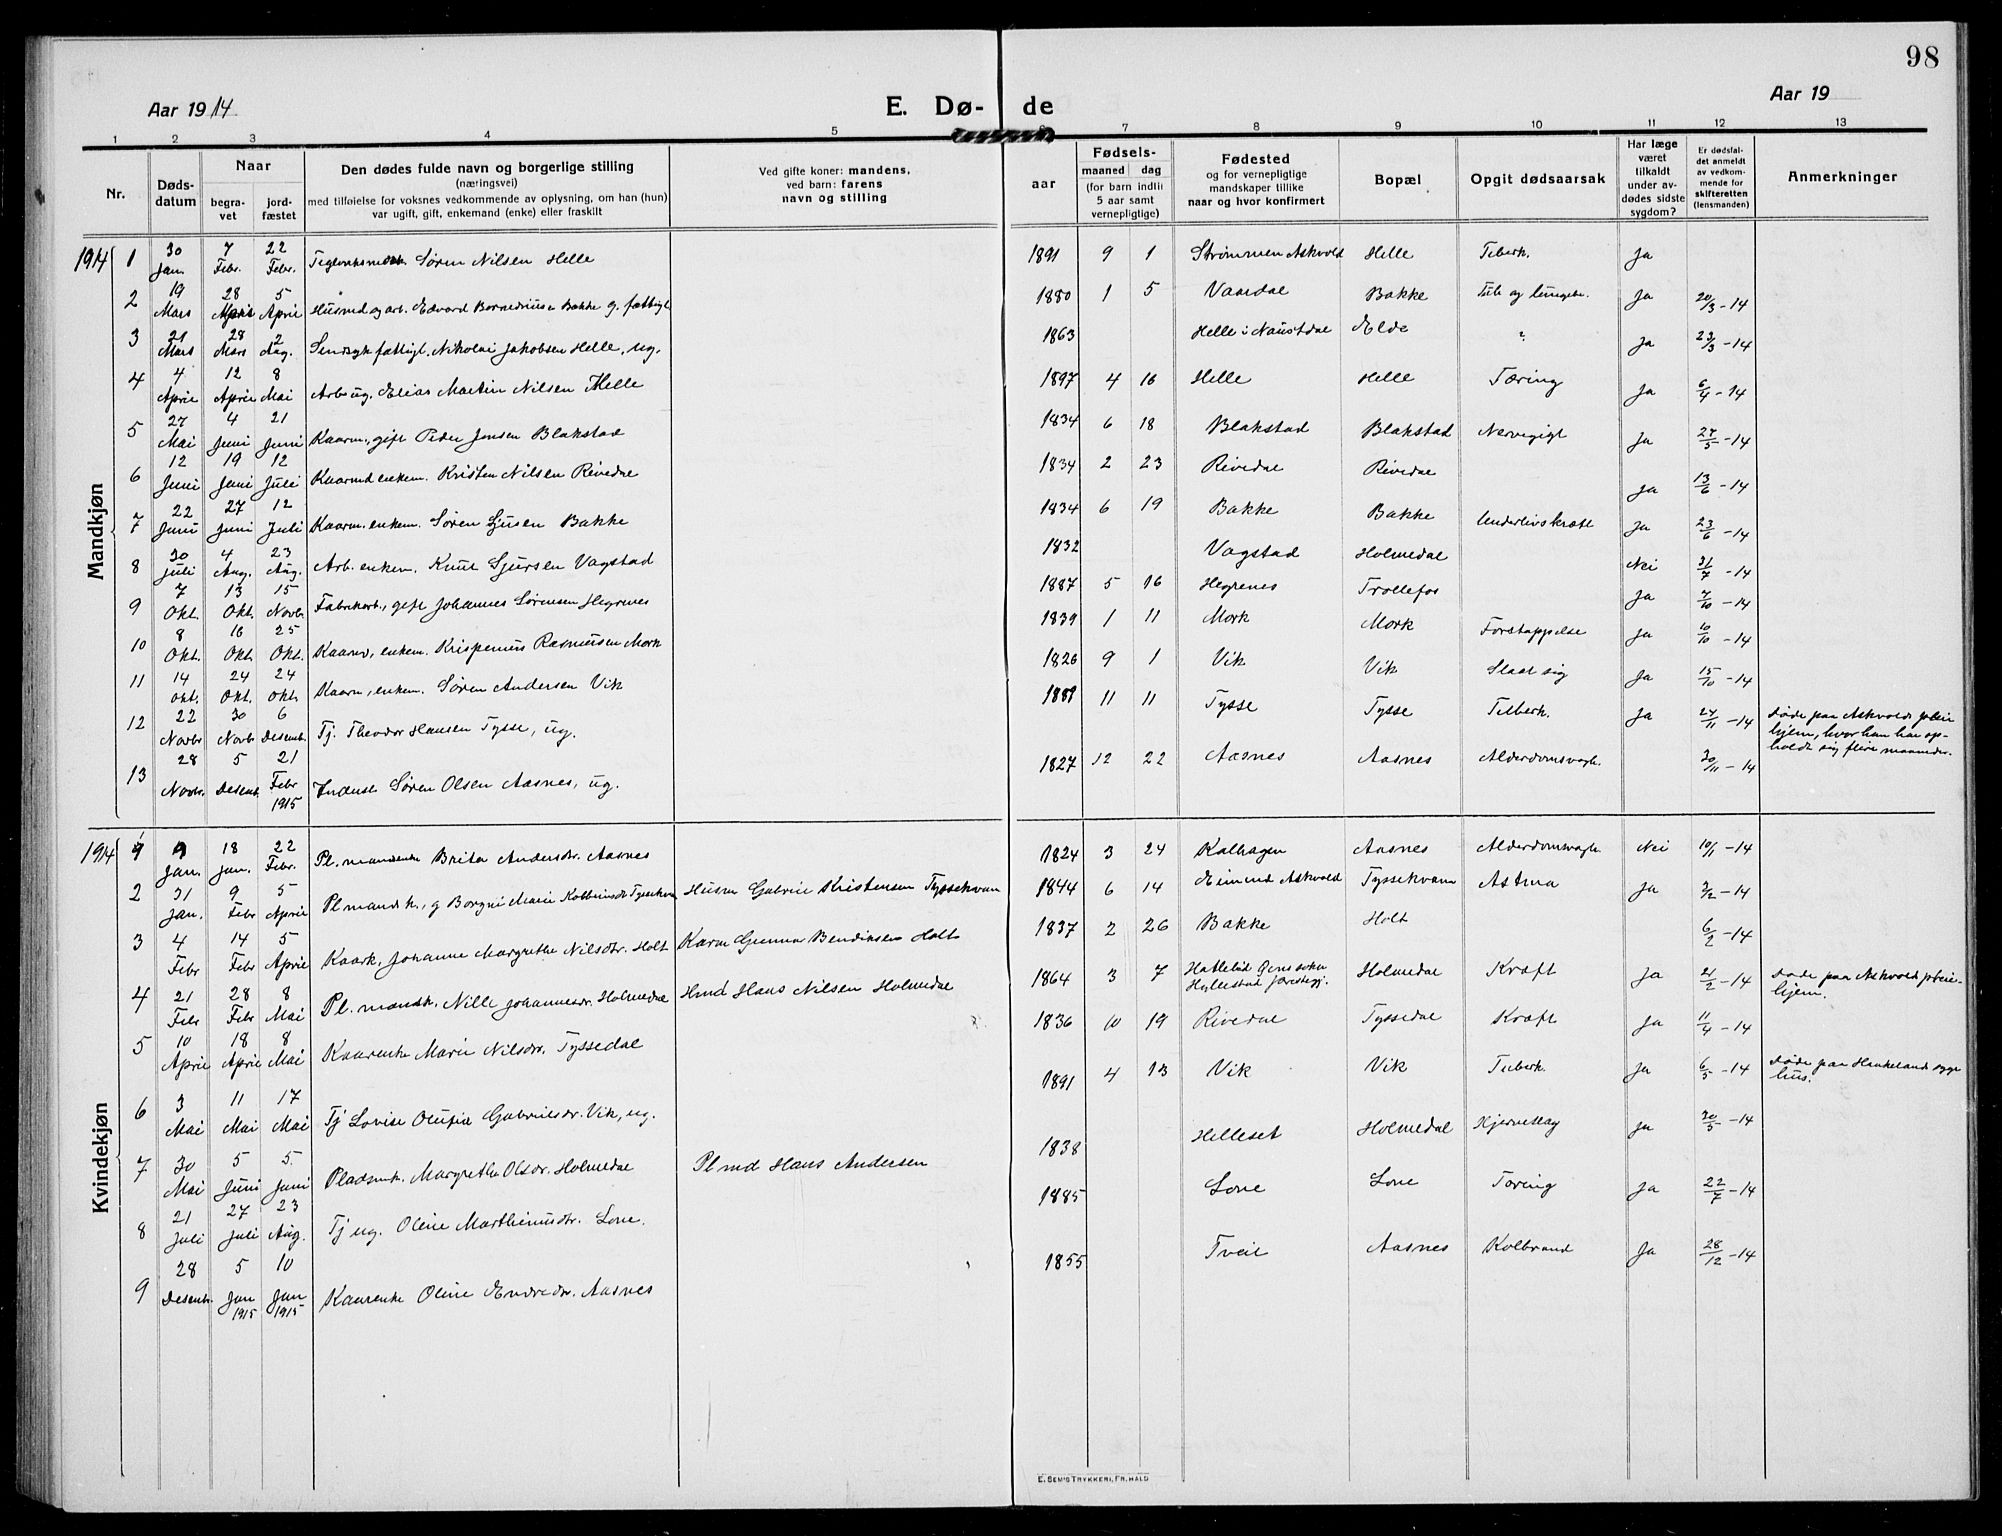 98
Aar 1914
E. Dø-
de
Aar 19
1 2 3 4 5 6 7 8 9 10 11 12 13
Nr.
Døds-
datum
Naar
begra-
vet
jord-
fæstet
Den dødes fulde navn og borgerlige stilling
(næringsvei)
med tilføielse for voksnes vedkommende av oplysning, om han (hun)
var ugift, gift, enkemand (enke) eller fraskilt
Ved gifte koner: mandens,
ved barn: farens
navn og stilling
aar
Fødsels-
maaned dag
(for barn indtil
5 aar samt
vernepligtige)
Fødested
og for vernepligtige
mandskaper tillike
naar og hvor konfirmert
Bopæl
Opgit dødsaarsak
Har læge
været
tilkaldt
under av-
dødes sidste
sygdom?
Er dødsfal-
det anmeldt
av vedkom-
mende for
skifteretten
(lensmanden)
Anmerkninger
Mandkjøn
1914 1 30 Jan. 7 Febr. 22 Febr. Søren Nilsen Helle 1891 9 1 Strømmen Askvold Helle Tuberk. Ja
2 19 Mars 28 5 April Husmd og arb. Edvard Bakke g. fattigl 1880 1 5 Bakke Tub. og Ja 20/3-14
3 21 Mars 28 Mars 2 Aug. Sindsyk fattigl. Nikolai Jakobsen Helle, ug. 1863 Helle i Naustdal Elde ? Ja 23/3-14
4 4 April 12 April 8 Mai Arb. ug. Elias Martin Nilsen Helle 1897 4 16 Helle Helle Tæring Ja 6/4-14
5 27 Mai 4 Juni 21 Juni Kaarm., gift Peder Jensen Blakstad 1834 6 18 Blakstad Blakstad Nervegigt Ja 27/5-14
6 12 Juni 19 Juni 12 Juli Kaarmd enkem. Kristen Nilsen Rivedal 1834 2 23 Rivedal Rivedal Ja 13/6-14
7 22 Juni 27 Juni 12 Juli Kaarm., enkem. Søren Bakke 1834 6 19 Bakke Bakke Underlivskræft Ja 23/6-14
8 30 Juli 4 Aug. 23 Aug. Arb. enkem. Knut Sjursen Vagstad 1832 Vagstad Holmedal Nei 31/7-14
9 7 Okt. 13 Okt. 15 Novbr. Fabrikarb., gift Johannes Sørensen Hegrenes 1887 5 16 Hegrenes Trollefos Ja 7/10-14
10 8 Okt. 16 Okt. 25 Okt. enkem. Krispenus Rasmussen Mork 1839 1 11 Mork Mork Forstoppelse Ja 10/10-14
11 14 Okt. 24 Okt. 24 Okt. Kaarm, enkem. Søren Andersen Vik 1826 9 1 Vik Vik Slaat sig Ja 15/10-14
12 22 Novbr 30 Novbr 6 Desemb. Tj. Theodor Hansen Tysse, ug. 1889 11 11 Tysse Tysse Tuberk. Ja 24/11-14 Døde paa Askvold pleie-
hjem, hvor han har op-
holdt sig flere maaneder.
13 28 Novbr. 5 Desemb. 21 Febr 1915 Indenst Søren Olsen Aasnes, ug. 1827 12 22 Aasnes Aasnes Alderdomssvagh. 30/11-14
Kvindekjøn
1914 1 9 Jan. 18 Jan. 22 Febr. Pl.mandenke Brita Andersdr. Aasnes 1824 3 24 Kalhagen Aasnes Alderdomssvagh. Nei 10/1-14
2 31 Jan. 9 Febr 5 April Pl mandsk., g Borgni Marie Tyssekvam Husm Gabriel Kristensen Tyssekvam 1844 6 14 Askvold Tyssekvam Astma Ja 3/2-14
3 4 Febr 14 Febr 5 April Kaark, Johanne Margrethe Nilsdtr. Holt Karm Gunnar Bendiksen Holt 1837 2 26 Bakke Holt 6/2-14
4 21 Febr 28 Febr 8 Mai Pl. mandsk. Nille Johannesdr. Holmedal Hmd Hans Nilsen Holmedal 1864 3 7 Hatlelid sokn
Hyllestad prestegj. Holmedal Kræft Ja 21/2-14 Døde paa Askvold pleie-
hjem.
5 10 April 18 April 8 Mai Kaarenke Marie Nilsdr. Tyssedal 1836 10 19 Rivedal Tyssedal Kræft Ja 11/4-14
6 3 Mai 11 Mai 17 Mai Tj Lovise Olufia Gabrielsdr. Vik, ug. 1891 4 13 Vik Vik Tuberk. Ja 6/5-14 Døde paa Haukeland syge
hus.
7 30 Mai 5 Juni 5 Juni Pladsmk. Margrethe Olsdr. Holmedal Pl md Hans Andersen 1838 Helleset Holmedal Hjerneslag Ja 30/5-14
8 21 Juli 27 Juli 23 Aug. Tj ug. Oline Marthinusdr. Lone. 1885 Lone Lone Tæring Ja 22/7-14
9 28 Desemb. 5 Jan 1915 10 Jan 1915 Kaarenke Oline Endredr. Aasnes 1855 Tveit Aasnes Kolbrand Ja 28/12-14
E. SEM'S TRYKKERI, FR.HALD